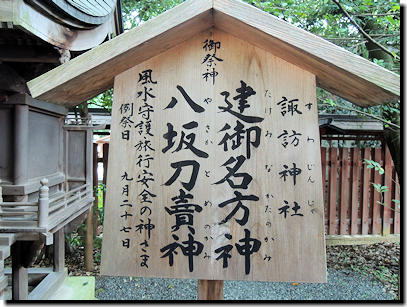 諏訪神社
すわじんじゃ
御祭神
建御名方神
たけみなかたのかみ
八坂刀賣神
やさかとめのみ
風水守護・旅行安全の神さま
例祭日　九月二十七日